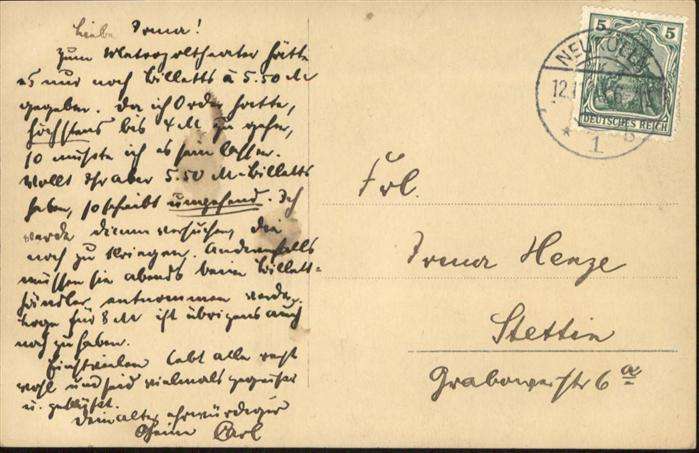 Liebe Irma!
Zum Metropoltheater hätte
es nur noch Billetts à 5.50 M
gegeben. Da ich Order hatte,
höchstens bis 4 M zu gehen,
so mußte ich es sein lassen.
Wollt Ihr aber 5.50 M-Billetts
haben, so schreibt umgehend. Ich
werde dann versuchen, die
noch zu kriegen. Andernfalls
müssen sie abends beim Billett-
händler entnommen werden.
Loge für 8 M ist übrigens auch
noch zu haben.
Einstweilen lebt alle recht
wohl und seid vielmals gegrüßt
u. geküßt.
Dein alter ehrwürdiger
Carl
Frl.
Irma Henze
Stettin
Grabowerstr 6a
NEUKÖLLN
12.1
* 1
5 5
DEUTSCHES REICH